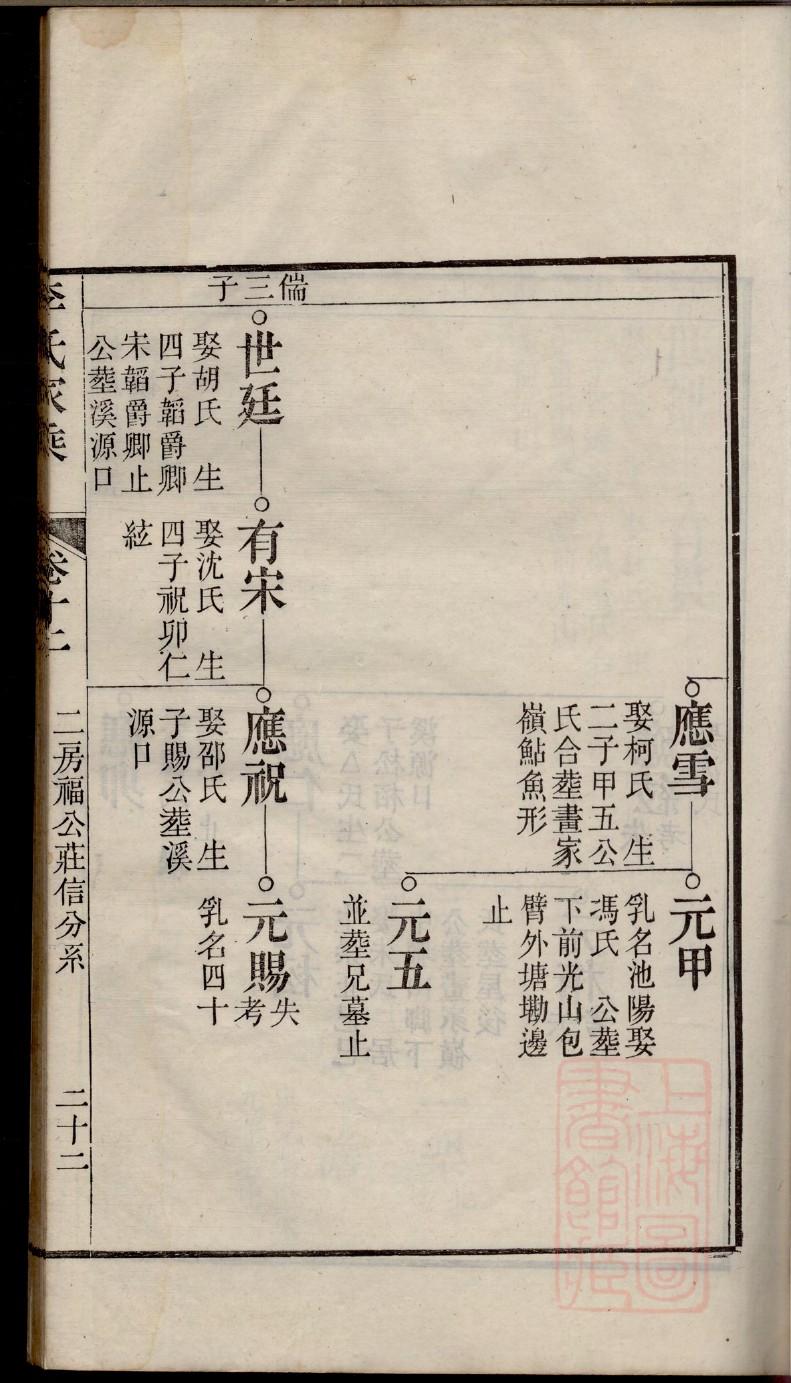 應雪
娶柯氏 生
二子甲五公
氏合塟畫家
嶺鮎魚形
元甲
乳名池陽娶
馮氏 公塟
下前光山包
臂外塘塝邊
止
元五
並塟兄墓止
儒三子
世廷
娶胡氏 生
四子韜爵卿
宋韜爵卿止
公塟溪源口
有宋
娶沈氏 生
四子祝卯仁
絃
應祝
娶邵氏 生
子賜公塟溪
源口
元賜
失考
乳名四十
李氏家乘
卷十二
二房福公莊信分系
二十二
上海圖
書館藏